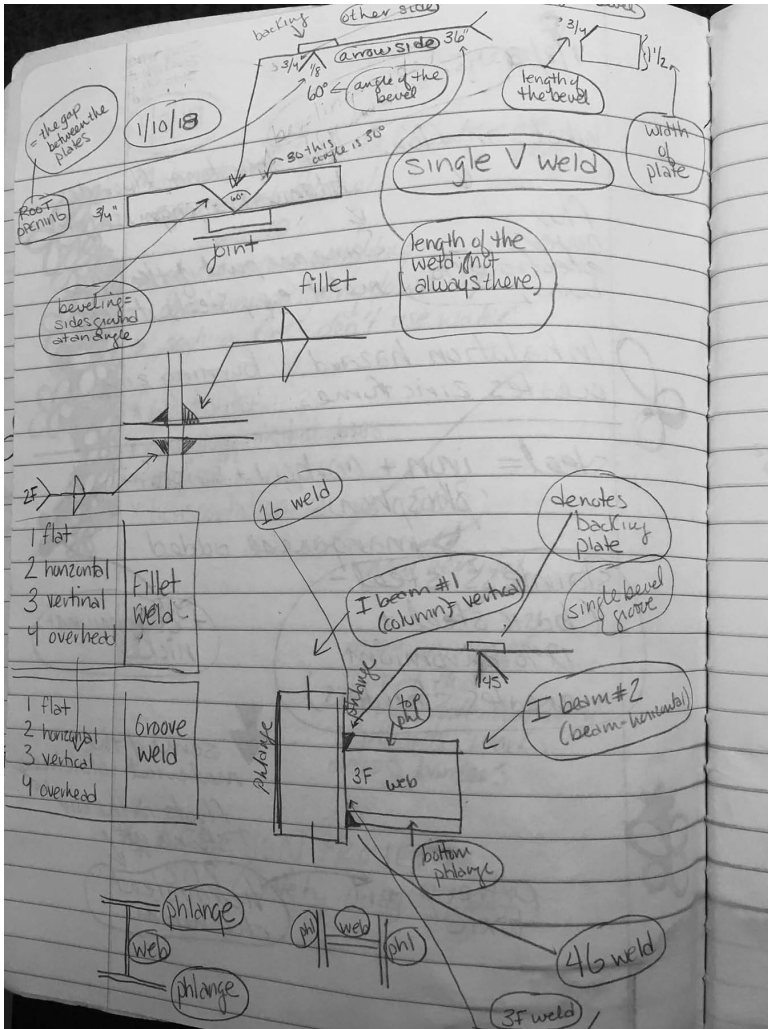 backing
other side
3/4
1/8
arrow side
36"
60°
angle of the
bevel
3/4
1 1/2
length of
the bevel
width
of
plate
= the gap
between the
plates
1/10/18
so this
angle is 30°
single V weld
ROOT
OPENING
3/4"
60°
joint
length of the
weld, (not
always there)
beveling =
sides ground
at an angle
fillet
2F
1 flat
2 horizontal
3 vertinal
4 overhead
Fillet
weld
1 flat
2 horizontal
3 vertical
4 overhead
Groove
weld
1G weld
denotes
backing
plate
I beam #1
(column = vertical)
single bevel
groove
45
I beam #2
(beam - horizontal)
phlange
phlange
top
phl
3F web
bottom
phlange
phlange
web
phlange
phl
web
phl
4G weld
3F weld